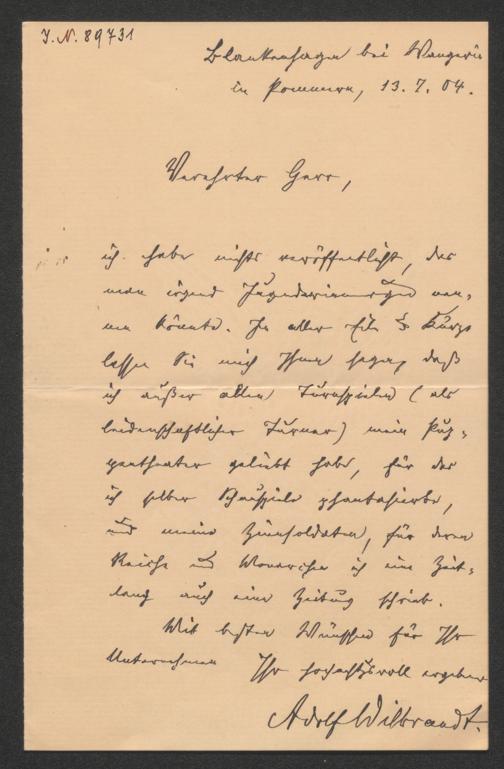 I. N. 89731
Blankenhagen bei Wangerin
in Pommern, 13. 7. 04.
Verehrter Herr,
ich habe nichts veröffentlicht, das
man irgend Jugenderinnerungen nen-
nen könnte. In aller Eile u Kürze
lassen Sie mich Ihnen sagen, daß
ich außer allen Turnspielen (als
leidenschaftlicher Turner) mein Pup-
pentheater geliebt habe, für das
ich selber Schauspiele phantasierte,
und meine Zinnsoldaten, für deren
Reiche und Monarchen ich eine Zeit-
lang auch eine Zeitung schrieb.
Mit besten Wünschen für Ihr
Unternehmen Ihr hochachtungsvoll ergebener
Adolf Wilbrandt.